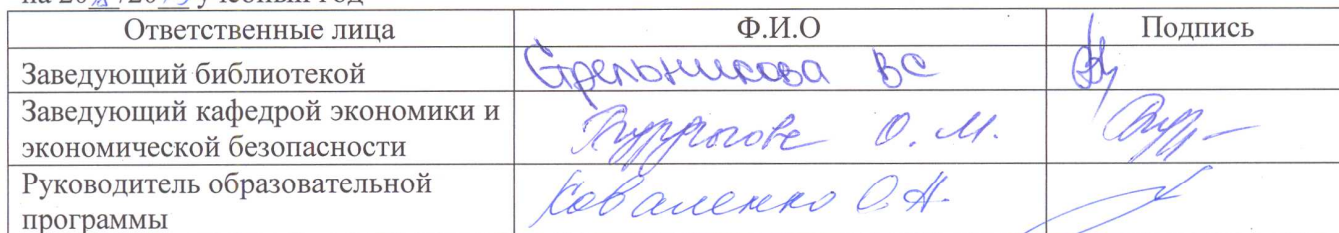 на 20 /20 учебный год
Ответственные лица Ф.И.О Подпись
Заведующий библиотекой Стрельникова ВС
Заведующий кафедрой экономики и
экономической безопасности О.М.
Руководитель образовательной
программы Коваленко О.Н.